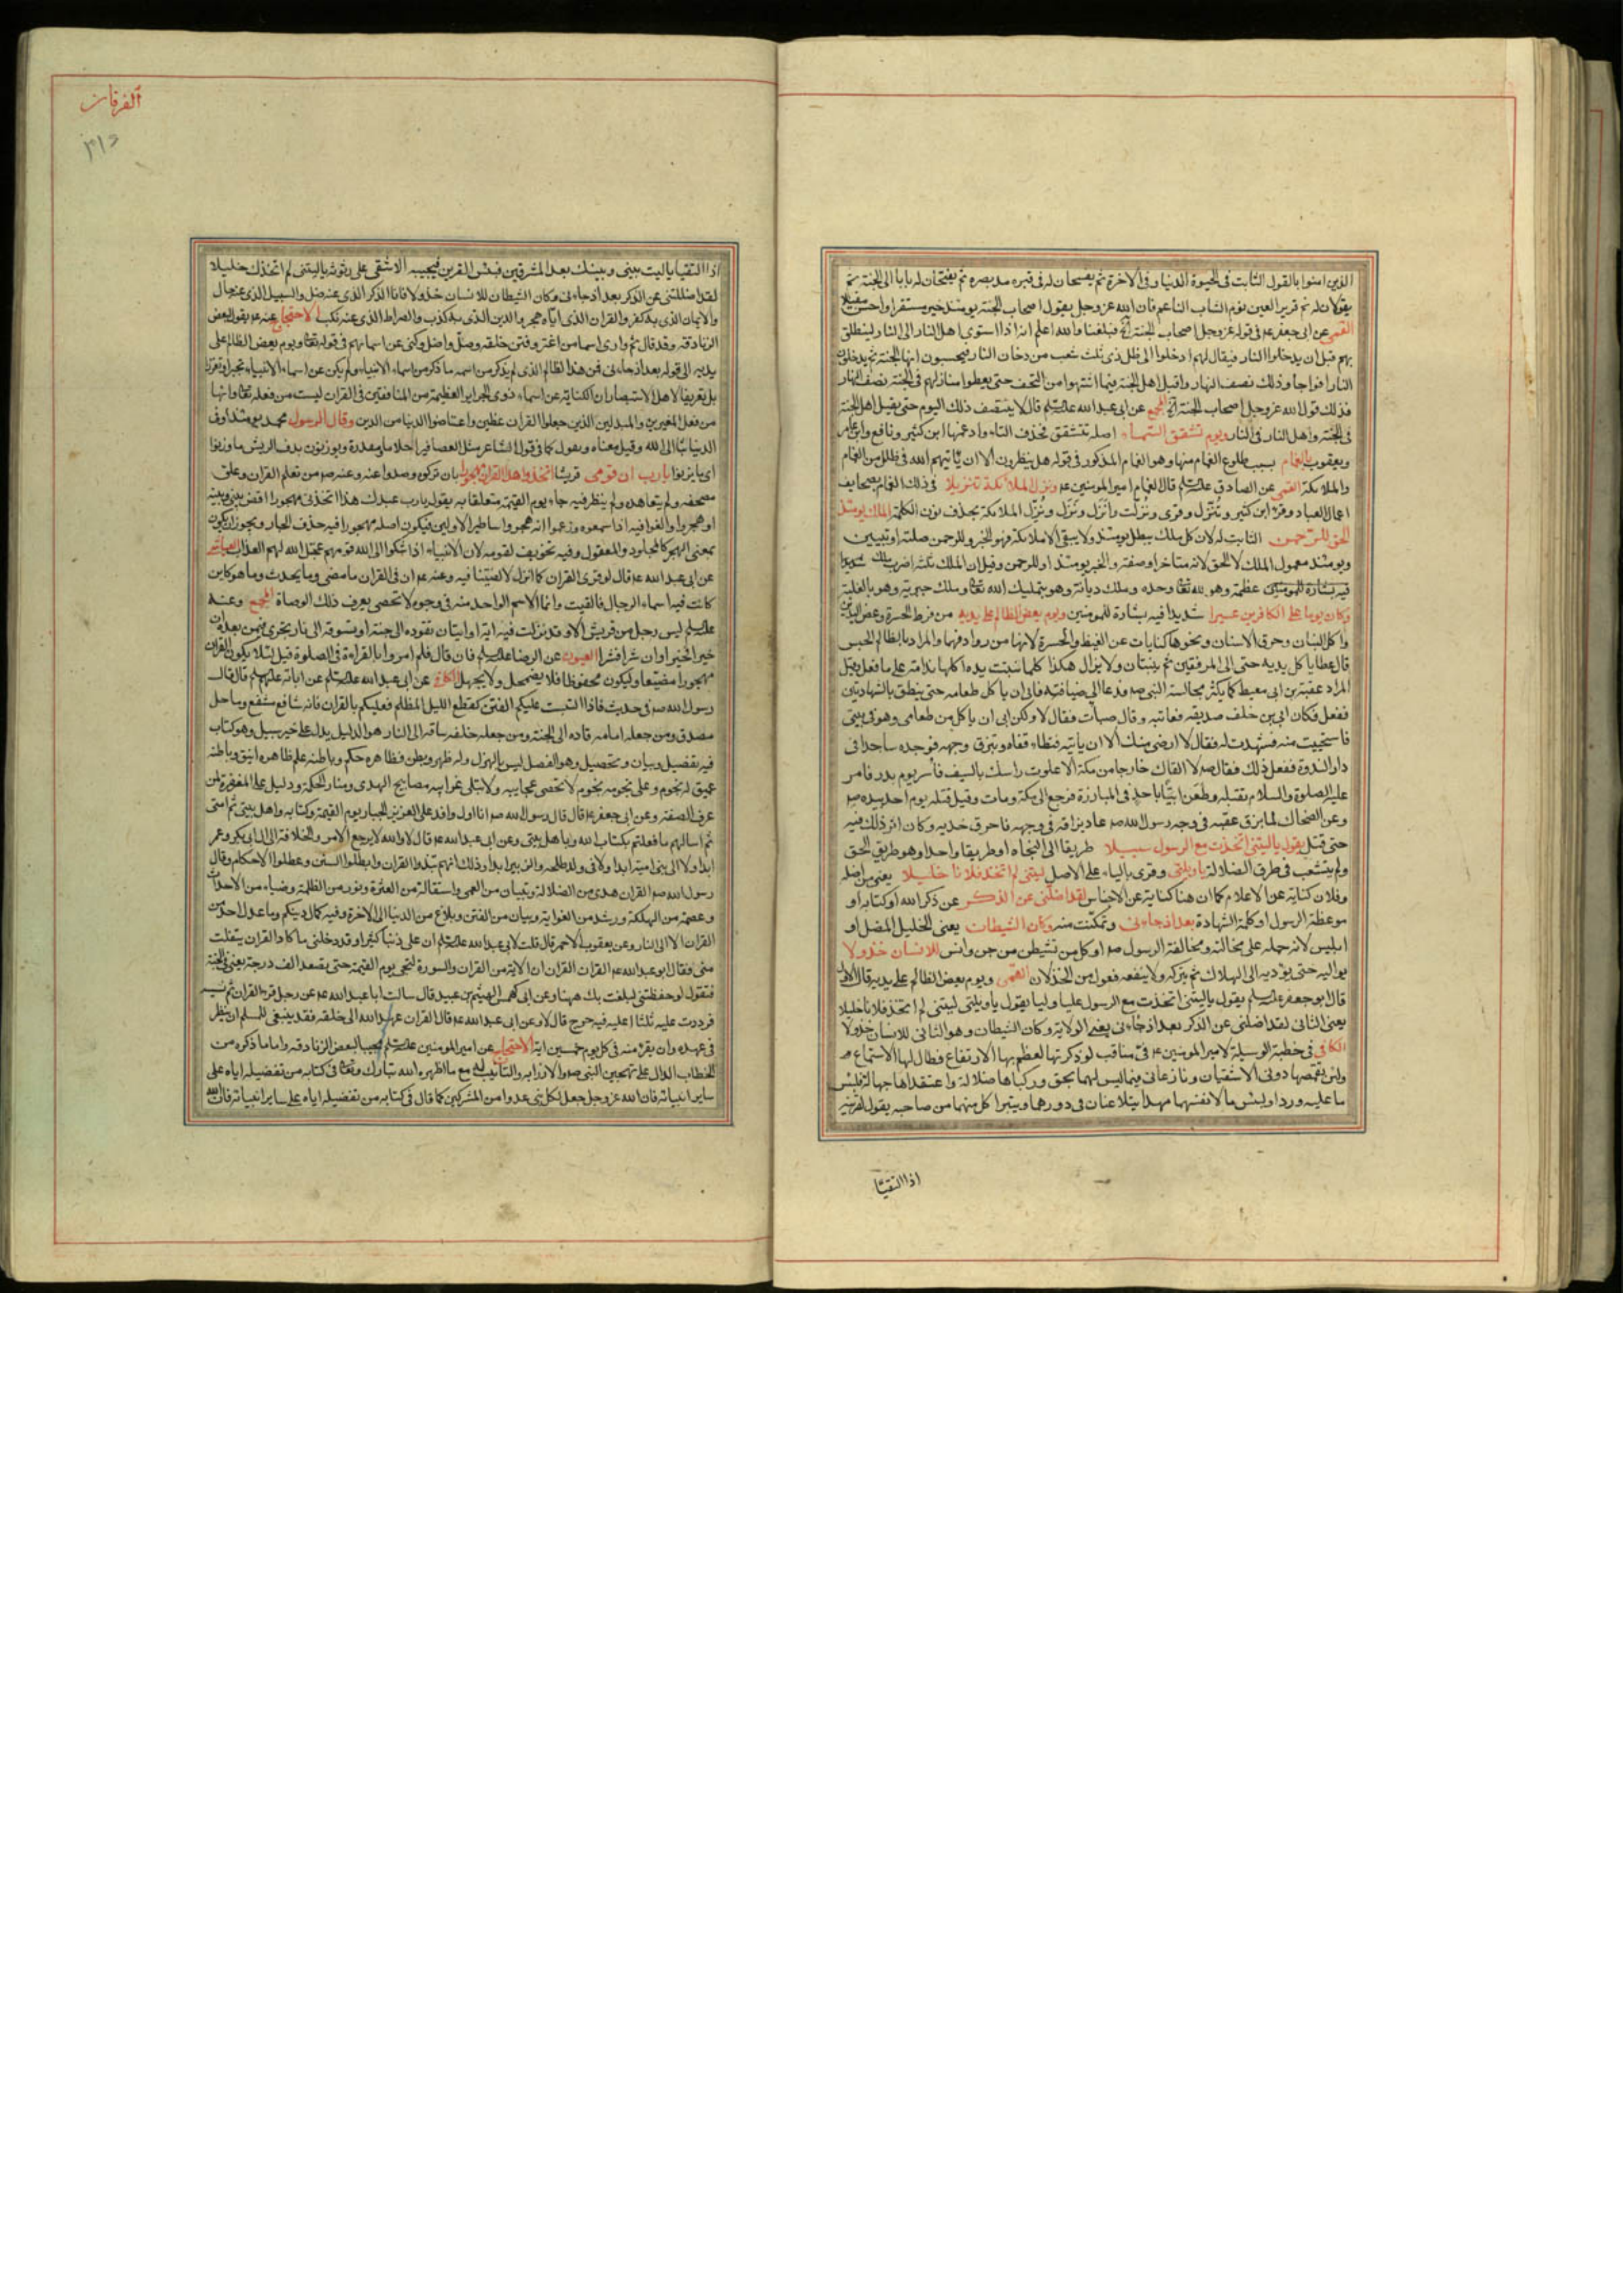 الذين امنوا بالقول الثابت فى الحيوة الدنيا وفى الاخرة ثم يفسحان له فى قبره مد بصره ثم يفتحان له بابا الى الجنة ثم
يقولان له نم قرير العين نوم الشاب الناعم فان الله عز وجل يقول اصحاب الجنة يومئذ خير مستقرا واحسن مقيلا
القمى عن ابى جعفر ع فى قوله عز وجل اصحاب الجنة فبلغنا والله اعلم انه اذا استوى اهل النار الى النار لينطلق
بهم قبل ان يدخلوا النار فيقال لهم ادخلوا الى ظل ذى ثلث شعب من دخان النار فيحسبون انها الجنة ثم يدخلون
النار افواجا وذلك نصف النهار واقبل اهل الجنة فيما اشتهوا من التحف حتى يعطوا منازلهم فى الجنة نصف النهار
فذلك قول الله عز وجل اصحاب الجنة المجمع عن ابى عبد الله قال لا ينتصف ذلك اليوم حتى يقيل اهل الجنة
فى الجنة واهل النار فى النار ويوم تشقق السماء اصله تتشقق فحذف التاء وادغمها ابن كثير ونافع وابن عامر
ويعقوب بالغمام بسبب طلوع الغمام منها وهو الغمام المذكور فى قوله هل ينظرون الا ان ياتيهم الله فى ظلل من الغمام
والملائكة القمى عن الصادق قال الغمام امير المؤمنين ع ونزل الملائكة تنزيلا فى ذلك الغمام بصحايف
اعمال العباد وقرء ابن كثير وننزل وقرى ونزلت وانزل ونزل ونزل الملائكة بحذف نون الكلمة الملك يومئذ
الحق للرحمن الثابت له لان كل ملك يبطل يومئذ ولا يبقى الا ملكه فهو الخبر وللرحمن صلته او تبيين
ويومئذ معمول الملك لا الحق لانه متاخر او صفته والخبر يومئذ او للرحمن وقيل ان الملك ثلثة اضرب ملك
عظمة وهو لله وحده وملك ديانة وهو بتمليك الله وملك جبرية وهو بالغلبة
وكان يوما على الكافرين عسيرا شديدا فيه بشارة للمؤمنين ويوم يعض الظالم على يديه من فرط الحسرة وعض اليدين
واكل البنان وحرق الاسنان ونحوها كنايات عن الغيظ والحسرة لانها من روادفهما والمراد بالظالم الجنس
قال عطا ياكل يديه حتى الى المرفقين ثم ينبتان ولا يزال هكذا كلما نبتت يده اكلها ندامة على ما فعل وقيل
المراد عقبة بن ابى معيط كما يكثر مجالسة النبى ص فدعا الى ضيافته فابى ان ياكل طعامه حتى ينطق بالشهادتين
ففعل فكان ابى بن خلف صديقه فعاتبه وقال صبات فقال لا ولكن ابى ان ياكل من طعامى وهو فى بيتى
فاستحييت منه فشهدت له فقال لا ارضى منك الا ان ياتيه فتطاء قفاه وتبزق وجهه فوجده ساجدا فى
دار الندوة ففعل ذلك فقال ص لا القاك خارجا من مكة الا علوت راسك بالسيف فاسر يوم بدر فامر
عليه الصلوة والسلام بقتله وطعن ابيا باحد فى المبارزة فرجع الى مكة ومات وقيل قتله يوم احد بيده ص
وعن الضحاك لما بزق عقبه فى وجه رسول الله ص عاد بزاقه فى وجهه فاحرق خديه وكان اثر ذلك فيه
حتى قتل يقول ياليتنى اتخذت مع الرسول سبيلا طريقا الى النجاة او طريقا واحدا وهو طريق الحق
ولم يتشعب فى طرق الضلالة ياويلتى وقرى بالياء على الاصل ليتنى لم اتخذ فلانا خليلا يعنى من اضله
وفلان كناية عن الاعلام كما ان هنا كناية عن الاجناس لقد اضلنى عن الذكر عن ذكر الله او كتابه او
موعظة الرسول او كلمة الشهادة بعد اذ جاءنى وتمكنت منه وكان الشيطان يعنى الخليل المضل او
ابليس لانه حمله على مخالته ومخالفة الرسول ص او كل من تشيطن من جن وانس للانسان خذولا
يواليه حتى يؤديه الى الهلاك ثم يتركه ولا ينفعه فعول من الخذلان القمى ويوم يعض الظالم على يديه قال الاول
قال ابو جعفر يقول ياليتنى اتخذت مع الرسول عليا وليا يقول ياويلتى ليتنى لم اتخذ فلانا خليلا
يعنى الثانى لقد اضلنى عن الذكر بعد اذ جاءنى يعنى الولاية وكان الشيطان وهو الثانى للانسان خذولا
الكافى فى خطبة الوسيلة لامير المؤمنين ع فى مناقب لو ذكرتها لعظم بها الارتفاع فطال لها الاستماع
ولئن تقمصها دونى الاشقيان ونازعانى فيما ليس لهما بحق وركباها ضلالة واعتقداها جهالة فلبئس
ما عليه وردا ولبئس ما لانفسهما مهدا يتلاعنان فى دورهما ويتبرا كل منهما من صاحبه يقول لقرينه
اذا التقيا
الفرقان
اذا التقيا ياليت بينى وبينك بعد المشرقين فبئس القرين فيجيبه الاشقى على رثوثة ياليتنى لم اتخذك خليلا
لقد اضللتنى عن الذكر بعد اذ جاءنى وكان الشيطان للانسان خذولا فانا الذكر الذى عنه ضل والسبيل الذى عنه مال
والايمان الذى به كفر والقران الذى اياه هجر والدين الذى به كذب والصراط الذى عنه نكب الاحتجاج عنه ع يقول لبعض
الزنادقة وقد قال ثم وارى اسما من اغتر وفتن خلقه وضل واضل وكنى عن اسمائهم فى قوله ويوم يعض الظالم على
يديه الى قوله بعد اذ جاءنى فمن هذا الظالم الذى لم يذكر من اسمه ما ذكر من اسماء الانبياء ولم يكن عن اسماء الانبياء تجبرا وتعززا
بل تعريفا لاهل الاستبصار ان الكناية عن اسماء ذوى الجراير العظيمة من المنافقين فى القران ليست من فعله وانها
من فعل المغيرين والمبدلين الذين جعلوا القران عظين واعتاضوا الدنيا من الدين وقال الرسول محمد يومئذ او فى
الدنيا بثا الى الله وقيل معناه ويقول كما فى قول الشاعر مثل العصافير احلاما ومقدرة ويوزنون بدف الريش ما وزنوا
اى ما يزنوا يارب ان قومى قريشا اتخذوا هذا القران مهجورا بان تركوه وصدوا عنه وعنه ص من تعلم القران وعلق
مصحفه ولم يتعاهده ولم ينظر فيه جاء يوم القيمة متعلقا به يقول يارب عبدك هذا اتخذنى مهجورا اقض بينى وبينه
او هجروا والغوا فيه اذا سمعوه وزعموا انه هجر واساطير الاولين فيكون اصله مهجورا فيه حذف الجار ويجوز ان يكون
بمعنى الهجر كالمجلود والمعقول وفيه تخويف لقومه لان الانبياء اذا شكوا الى الله قومهم عجل الله لهم العذاب العياشى
عن ابى عبد الله ع قال لو قرى القران كما انزل لالفيتنا فيه وعنه ع ان فى القران ما مضى وما يحدث وما هو كاين
كانت فيه اسماء الرجال فالقيت وانما الاسم الواحد منه فى وجوه لا تحصى يعرف ذلك الوصاة المجمع وعنه
ليس رجل من قريش الا وقد نزلت فيه اية او ايتان تقوده الى جنة او تسوقه الى نار تجرى فيمن بعده ان
خيرا فخيرا وان شرا فشرا العيون عن الرضا فان قال فلم امروا بالقراءة فى الصلوة قيل لئلا يكون القران
مهجورا مضيعا وليكون محفوظا فلا يضمحل ولا يجهل الكافى عن ابى عبد الله عن ابائه قال قال
رسول الله ص فى حديث فاذا التبست عليكم الفتن كقطع الليل المظلم فعليكم بالقران فانه شافع مشفع وماحل
مصدق ومن جعله امامه قاده الى الجنة ومن جعله خلفه ساقه الى النار هو الدليل يدل على خير سبيل وهو كتاب
فيه تفضيل وبيان وتحصيل وهو الفصل ليس بالهزل وله ظهر وبطن فظاهره حكم وباطنه علم ظاهره انيق وباطنه
عميق له نجوم وعلى نجومه نجوم لا تحصى عجايبه ولا تبلى غرايبه مصابيح الهدى ومنار الحكمة ودليل على المغفرة لمن
عرف الصفة وعن ابى جعفر ع قال قال رسول الله ص انا اول وافد على العزيز الجبار يوم القيمة وكتابه واهل بيتى ثم امتى
ثم اسالهم ما فعلتم بكتاب الله وباهل بيتى وعن ابى عبد الله ع قال لا والله لا يرجع الامر والخلافة الى ال ابى بكر وعمر
ابدا ولا الى بنى امية ابدا ولا فى ولد طلحه والزبير ابدا وذلك انهم نبذوا القران وابطلوا السنن وعطلوا الاحكام وقال
رسول الله ص القران هدى من الضلالة وتبيان من العمى واستقالة من العثرة ونور من الظلمة وضياء من الاحداث
وعصمة من الهلكة ورشد من الغواية وبيان من الفتن وبلاغ من الدنيا الى الاخرة وفيه كمال دينكم وما عدل احد من
القران الا الى النار وعن يعقوب الاحمر قال قلت لابى عبد الله ان على دينا كثيرا وقد دخلنى ما كاد القران يتفلت
منى فقال ابو عبد الله ع القران القران ان الاية من القران والسورة لتجى يوم القيمة حتى تصعد الف درجة يعنى فى الجنة
فتقول لو حفظتنى لبلغت بك ههنا وعن ابى كهمس الهيثم بن عبيد قال سالت ابا عبد الله ع عن رجل قرء القران ثم نسيه
فرددت عليه ثلثا اعليه فيه حرج قال لا وعن ابى عبد الله ع قال القران عهد الله الى خلقه فقد ينبغى للمسلم ان ينظر
فى عهده وان يقرء منه فى كل يوم خمسين اية الاحتجاج عن امير المؤمنين مجيبا لبعض الزنادقة واما ما ذكره من
الخطاب الدال على تهجين النبى ص والازراء به والتانيب له مع ما اظهره الله تبارك وتعالى فى كتابه من تفضيله اياه على
ساير انبيائه فان الله عز وجل جعل لكل نبى عدوا من المشركين كما قال فى كتابه من تفضيله اياه على ساير انبيائه فان الله